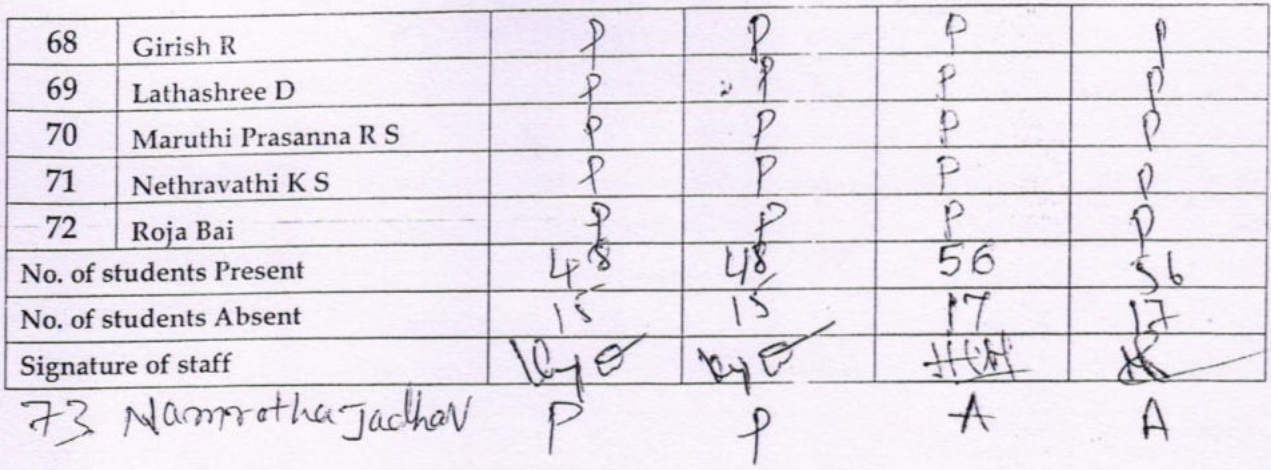 68 Girish R P P P P
69 Lathashree D P P P P
70 Maruthi Prasanna R S P P P P
71 Nethravathi K S P P P P
72 Roja Bai P P P P
No. of students Present 48 48 56 56
No. of students Absent 15 15 17 17
Signature of staff
73 Namrotha Jadhav P P A A